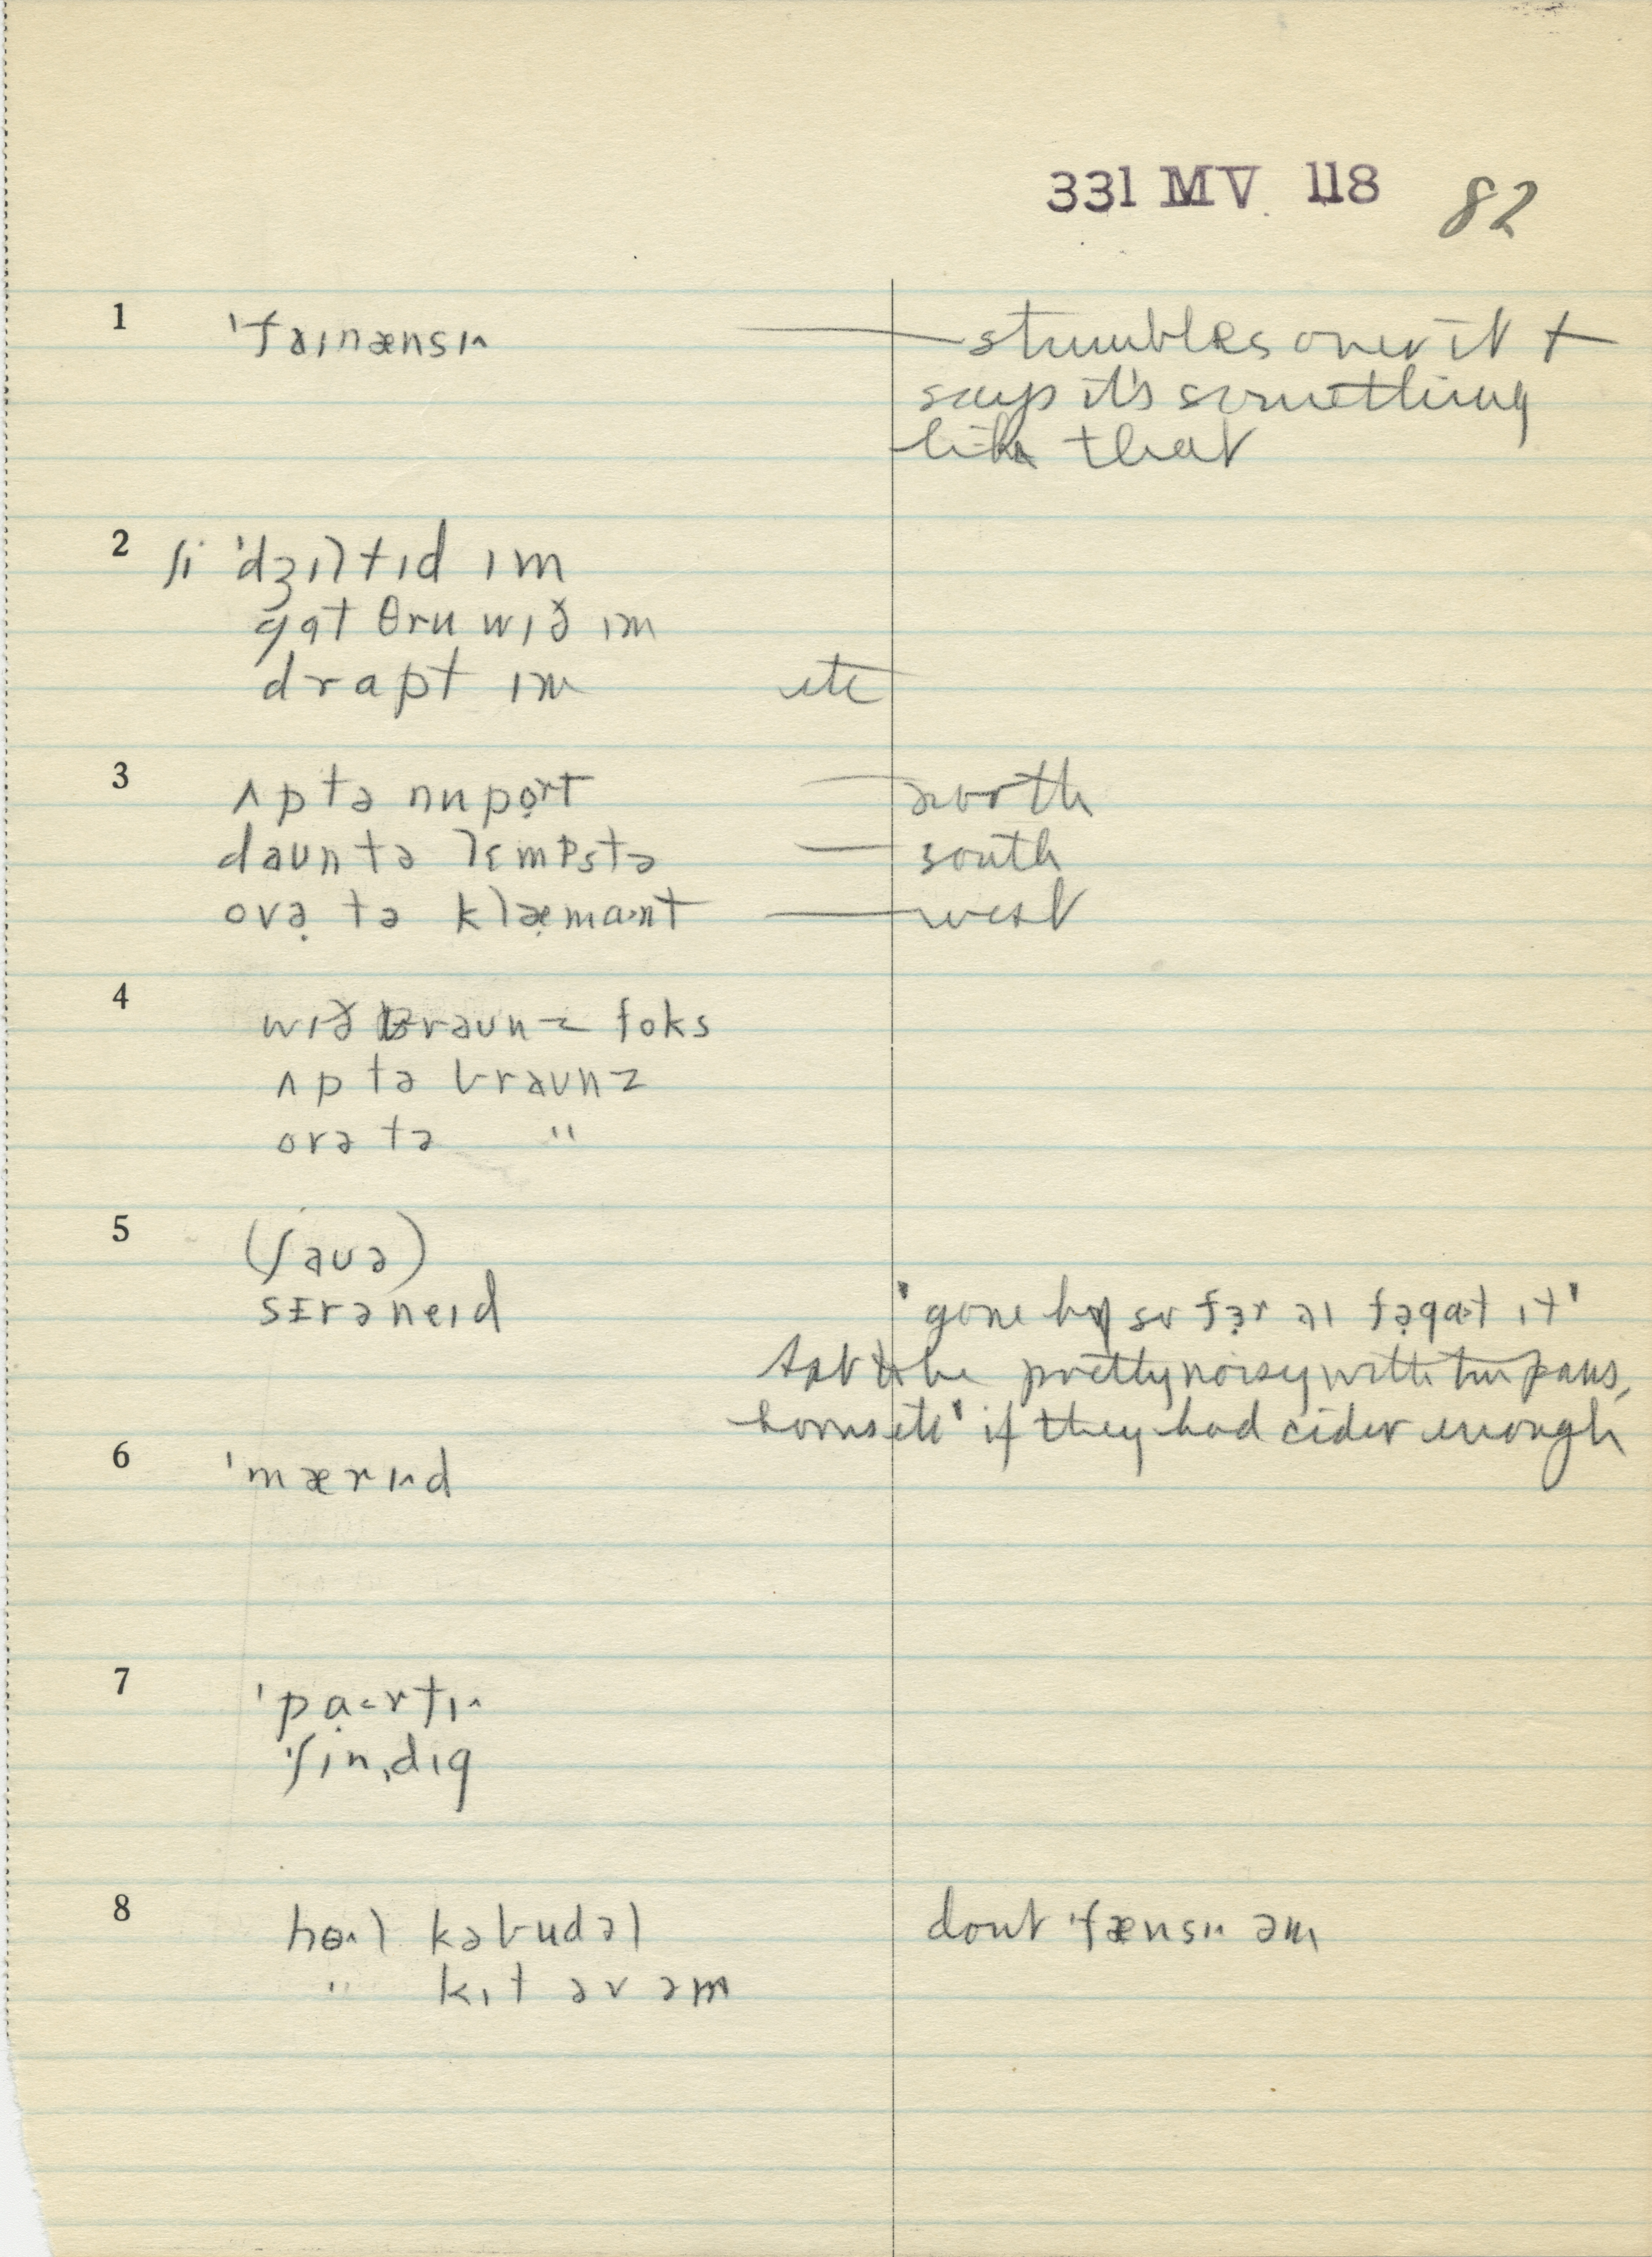 331 MV 118 82
1 ˈfaɪnænsɪ^ — stumbles over it +
says it's something
like that
2 ʃi ˈdʒɪltɪd ɪm
gɑt θru wɪð ɪm
drɑpt ɪm etc
3 ʌp tə nupọrt — north
daun tə lɛmpstə — south
ovə̣ tə klæ̣mɑnt — west
4 wɪð braunz foks
ʌp tə braunz
ovə tə "
5 (ʃauə)
sɛrəneɪd 'gone by so fɜ̣r aɪ fə̣gɑt ɪt'
to be pretty noisy with tin pans,
horns etc' if they had cider enough
6 ˈmærɪ^d
7 ˈpạrtɪ^
ˈʃɪnˌdɪg
8 hol kəbudəl dont ˈfænsɪ^ əm
" kɪt əv əm